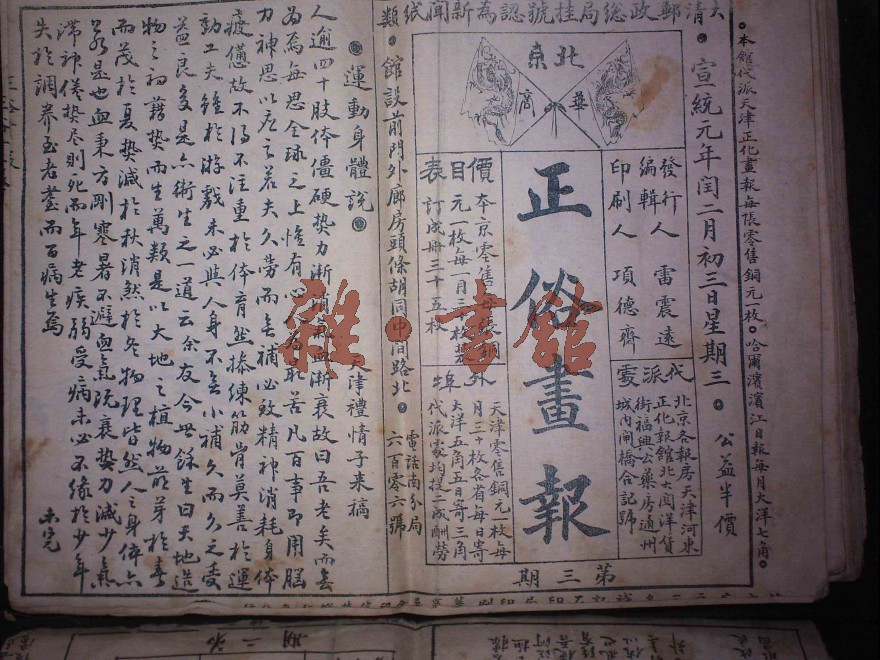 大清郵政總局挂號認為新聞紙類
本館代派天津正化畫報每張零售銅元一枚 哈爾濱濱江日報每月大洋七角
宣統元年閏二月初三日星期三 公益半價
北京
商 華
發行人 雷震遠
編輯人
印刷人 項德齊
代派處
北京各報房天津河東
正化報館北大關洋貨
街福興公藥房通州
城內閘橋合記號
正俗畫報
價目表
本京零售每張銅
元一枚每一月三
訂成冊三十五枚
外埠
天津零售銅元一枚每
月三十枚各省每日寄
大洋五角五日寄三角
代派處均提二成酬勞
第三期
館設前門外廊房頭條胡同中間路北 電話南分局
六百零六號
運動身體說 天津禮情子來稿
人逾四十肢体僵硬熱力漸 血漸衰故曰吾老矣而無
為焉每思全球之上惟有 最苦凡百事即用腦
力神思以應之若夫久勞而無補必致精神消耗身体
疲憊故不得不注重於体育然操練筋骨莫善於運
動工夫雖於游戲未必與人身不無小補久而久之受
益良多是亦衛生之一道云余友今世餘生曰天地造
物之初藉熱而生萬類是以大地之植物萌芽於春
而茂於夏熱減於秋消然於冬物理皆然人之身体亦
若是也血秉方剛寒暑不避血氣既衰熱力減少氣
滯神倦熱尽則死而年老疾弱受病未必不緣於少年
失於調养至老耄而百病生焉 未完
雜·書館